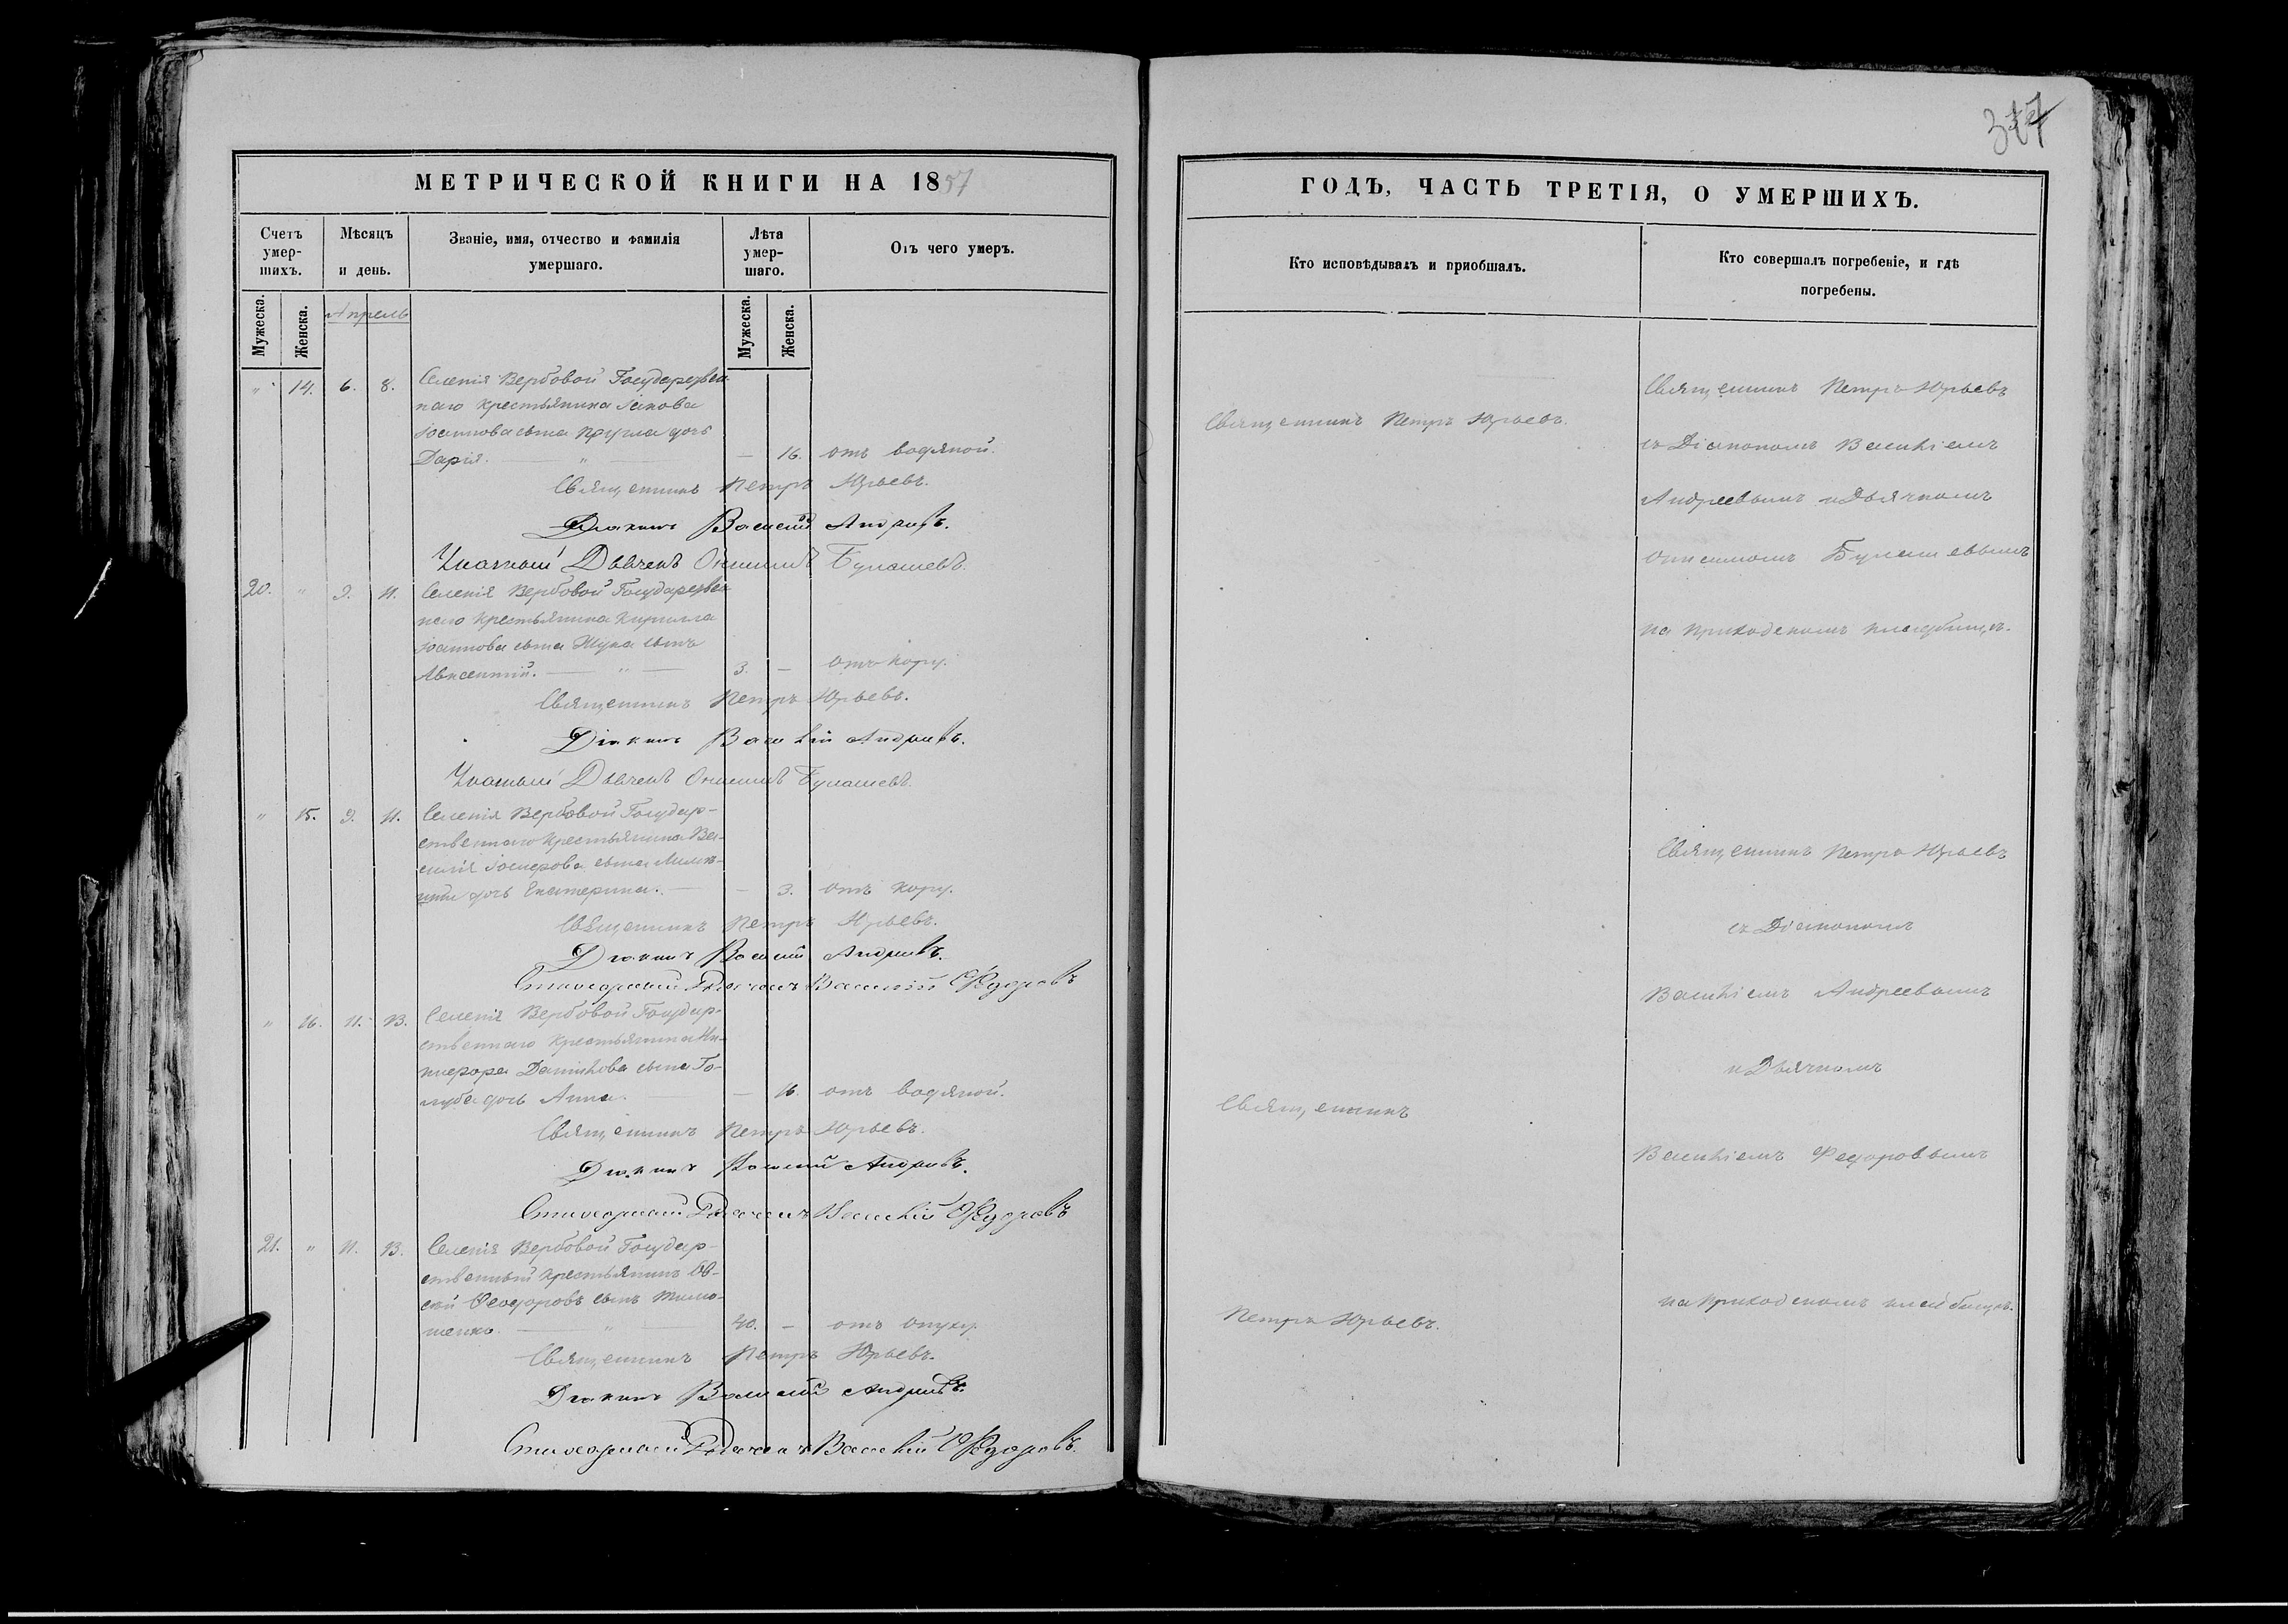 МЕТРИЧЕСКОЙ КНИГИ НА 1857
Счетъ умер-шихъ.
Мѣсяцъ и день.
Званіе, имя, отчество и фамилія умершаго.
Лѣта умер-шаго.
Отъ чего умеръ.
Мужеска.
Женска.
Апрель
Мужеска.
Женска.
" 14. 6. 8. Селенія Вербовой Государствен-
наго крестьянина Іакова
Іоаннова сына Кругла дочь
Дарія. — " — — 16. отъ водяной.
Священникъ Петръ Юрьевъ.
Діаконъ Василій Андреевъ.
Указный Дьячекъ Онисимъ Булашевъ.
20. " 9. 11. Селенія Вербовой Государствен-
наго крестьянина Кирилла
Іоаннова сына Жука сынъ
Авксентій. — " — 3. — отъ кору.
Священникъ Петръ Юрьевъ.
Діаконъ Василій Андреевъ.
Указный Дьячекъ Онисимъ Булашевъ.
" 15. 9. 11. Селенія Вербовой Государ-
ственнаго крестьянина Ва-
силія сына
дочь Екатерина. — — 3. отъ кору.
Священникъ Петръ Юрьевъ.
Діаконъ Василій Андреевъ.
Стихарный Дьячекъ Василій Федоровъ
" 16. 11. 13. Селенія Вербовой Государ-
ственнаго крестьянина Ни-
кифора Даніилова сына Го-
луба дочь Анна. — 16. отъ водяной.
Священникъ Петръ Юрьевъ.
Діаконъ Василій Андреевъ.
Стихарный Дьячекъ Василій Федоровъ
21. " 11. 13. Селенія Вербовой Государ-
ственный крестьянинъ Ов-
сій Феодоровъ сынъ Тимо-
шенко. — " — 40. — отъ опуху.
Священникъ Петръ Юрьевъ.
Діаконъ Василій Андреевъ.
Стихарный Дьячекъ Василій Федоровъ.
ГОДЪ, ЧАСТЬ ТРЕТІЯ, О УМЕРШИХЪ.
Кто исповѣдывалъ и пріобщалъ.
Кто совершалъ погребеніе, и гдѣ
погребены.
Священникъ Петръ Юрьевъ.
Священникъ
Петръ Юрьевъ.
Священникъ Петръ Юрьевъ
съ Діакономъ Василіемъ
Андреевымъ и Дьячкомъ
Онисимомъ Булашевымъ
на приходскомъ кладбищѣ.
Священникъ Петръ Юрьевъ
съ Діакономъ
Василіемъ Андреевымъ
и Дьячкомъ
Василіемъ Федоровымъ
на приходскомъ кладбищѣ.